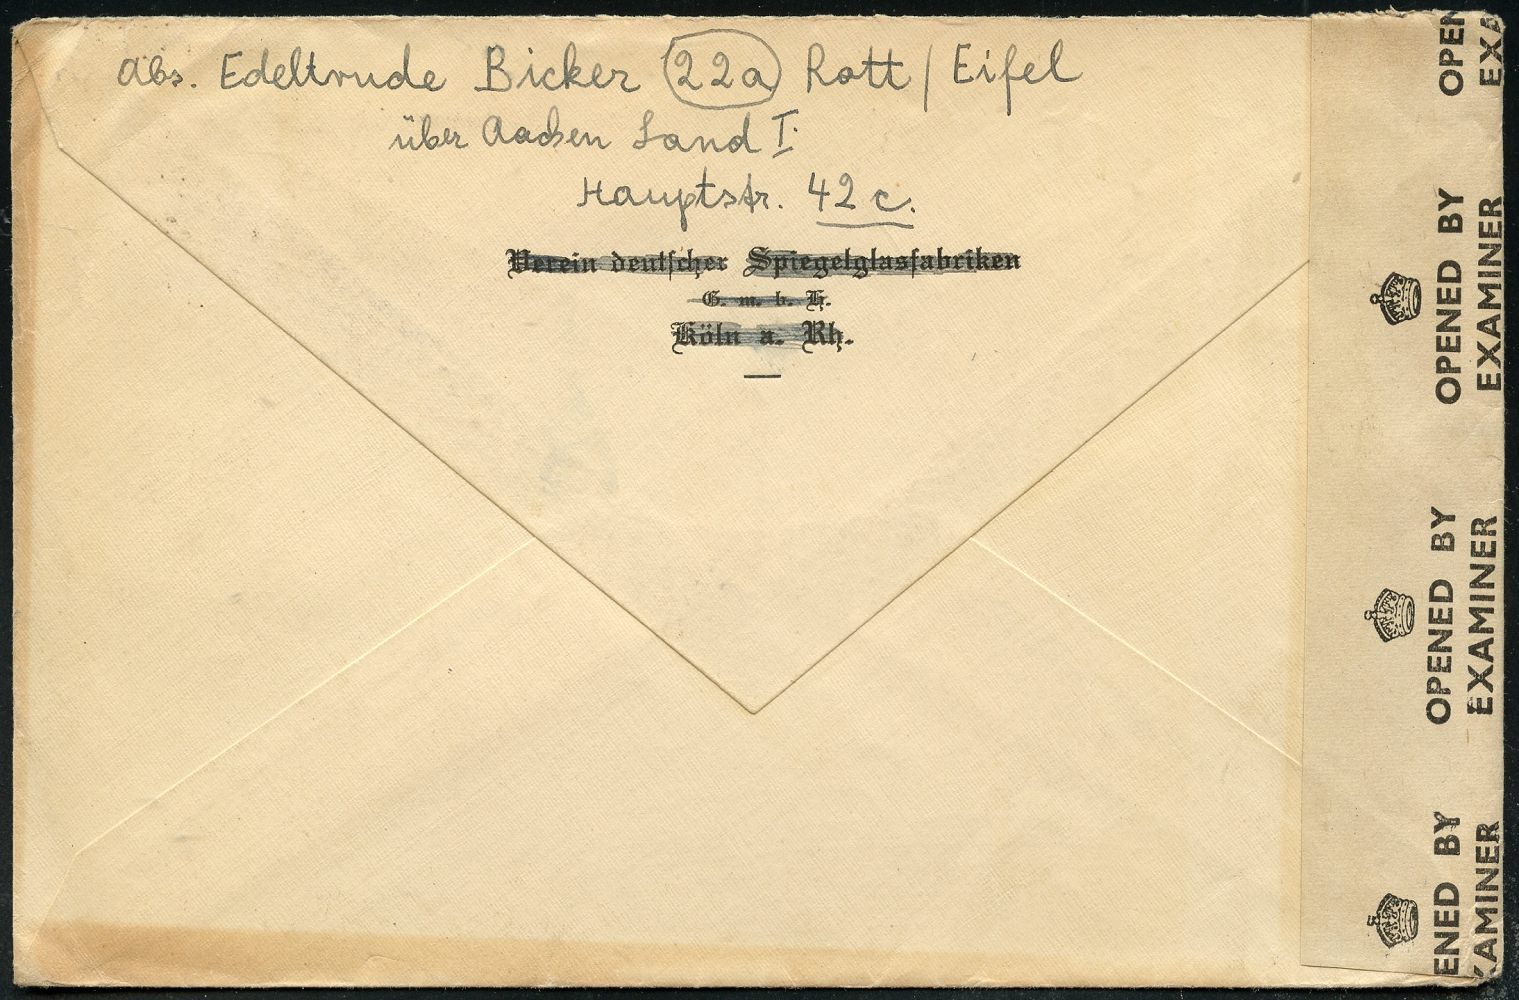 Abs. Edeltrude Bicker 22a Rott / Eifel
über Aachen Land I.
Hauptstr. 42 c.
Verein deutscher Spiegelglasfabriken
G. m. b. H.
Köln a. Rh.
OPEN
EXA
OPENED BY
EXAMINER
OPENED BY
EXAMINER
ENED BY
AMINER